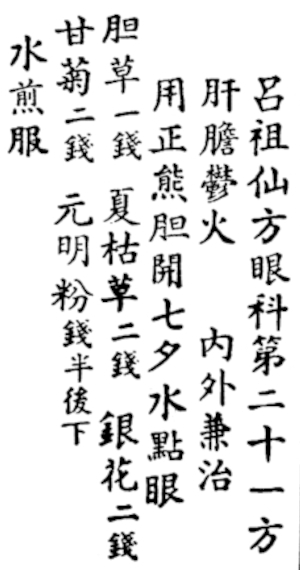 呂祖仙方眼科第二十一方
肝膽鬱火 內外兼治
用正熊胆開七夕水點眼
胆草一錢 夏枯草二錢 銀花二錢
甘菊二錢 元明粉錢半後下
水煎服